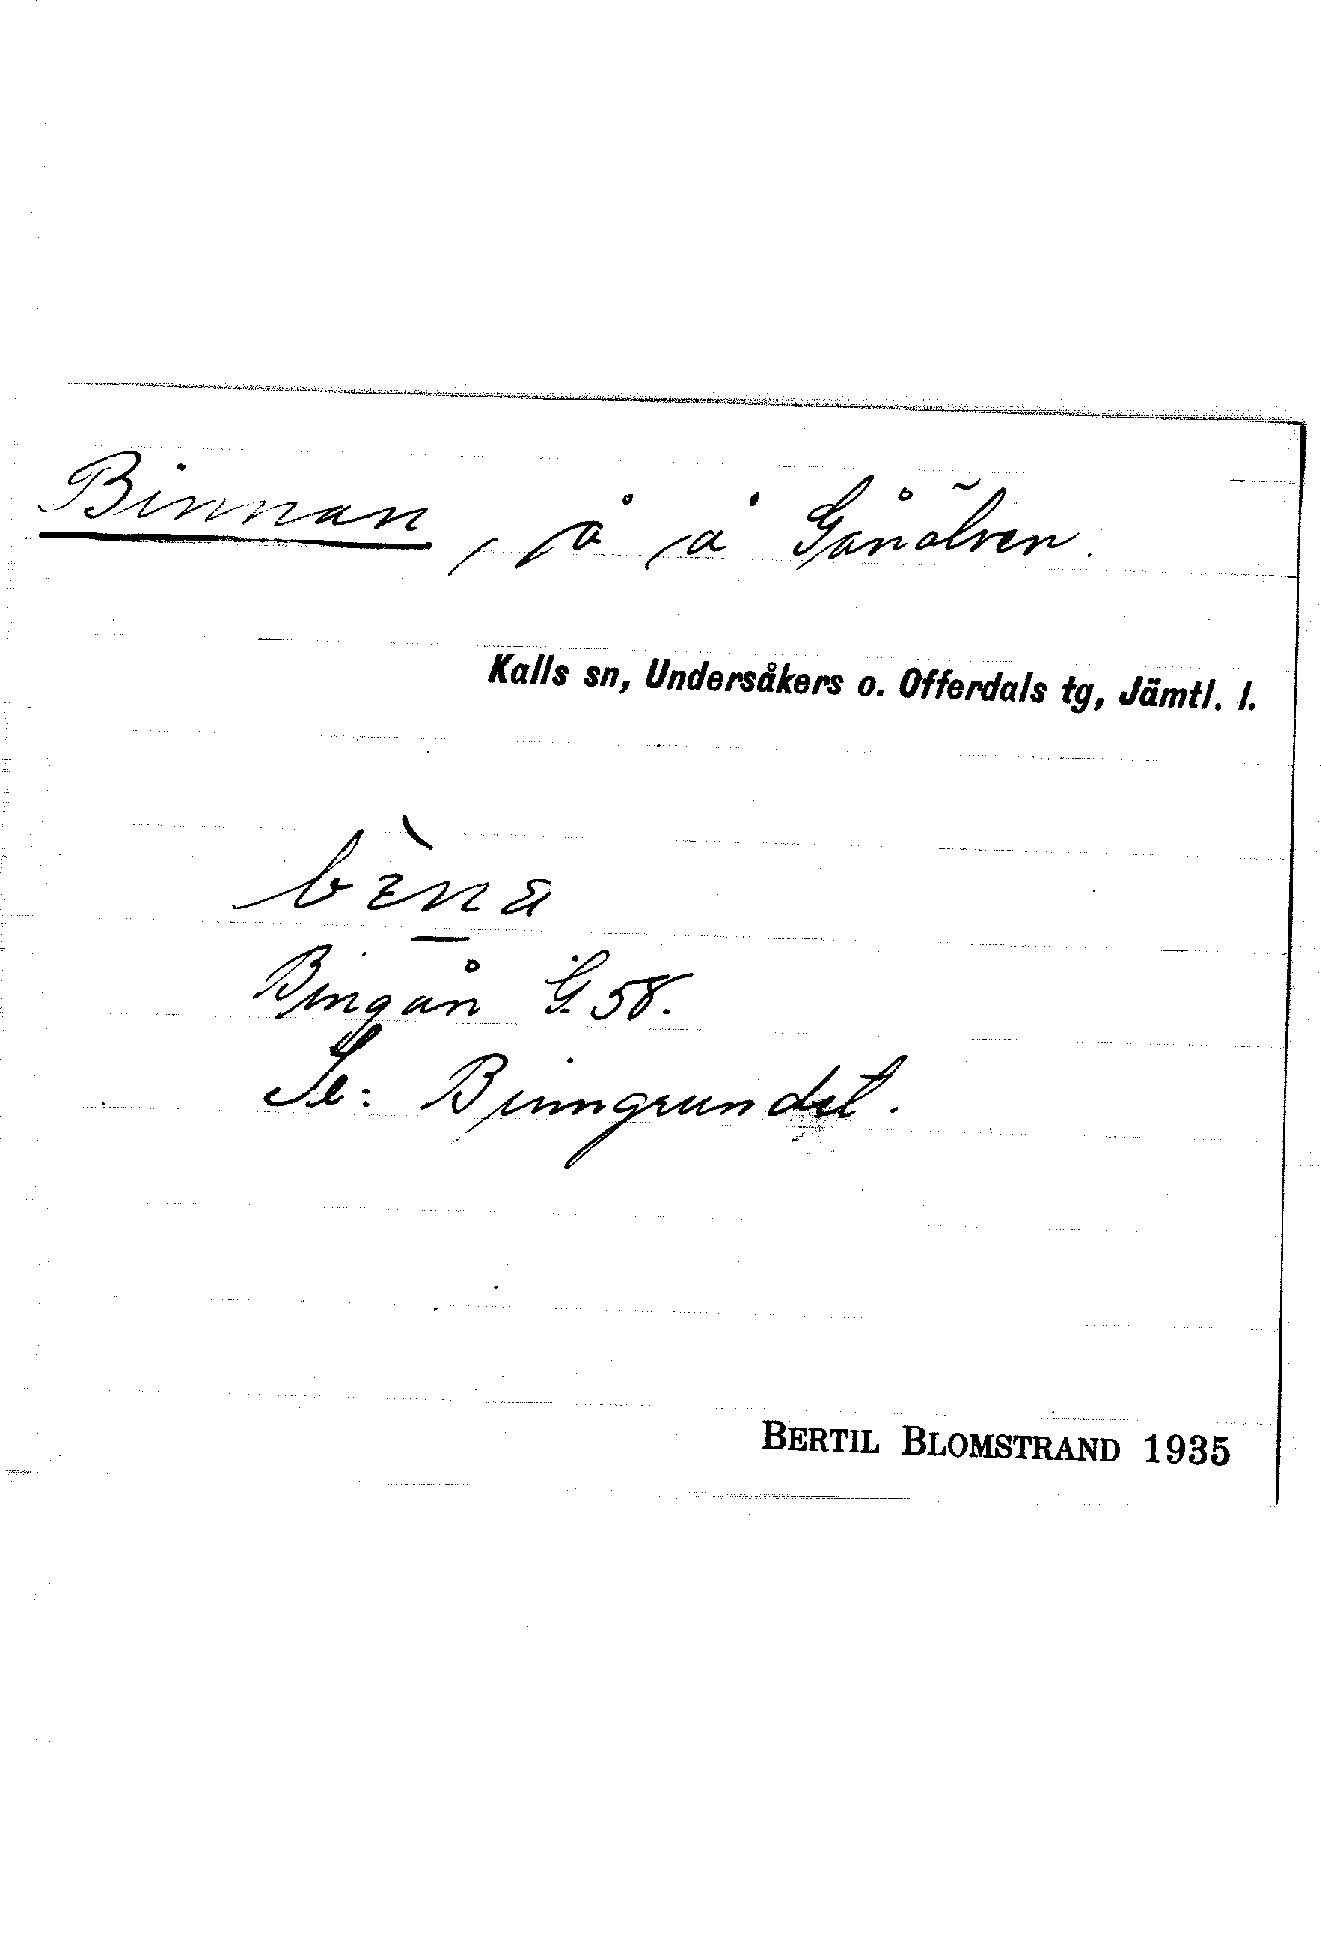 Binnan, å å Gånälven.
Kalls sn, Undersåkers o. Offerdals tg, Jämtl. l.
Bingån G.58.
Se: Binngrundet.
BERTIL BLOMSTRAND 1935